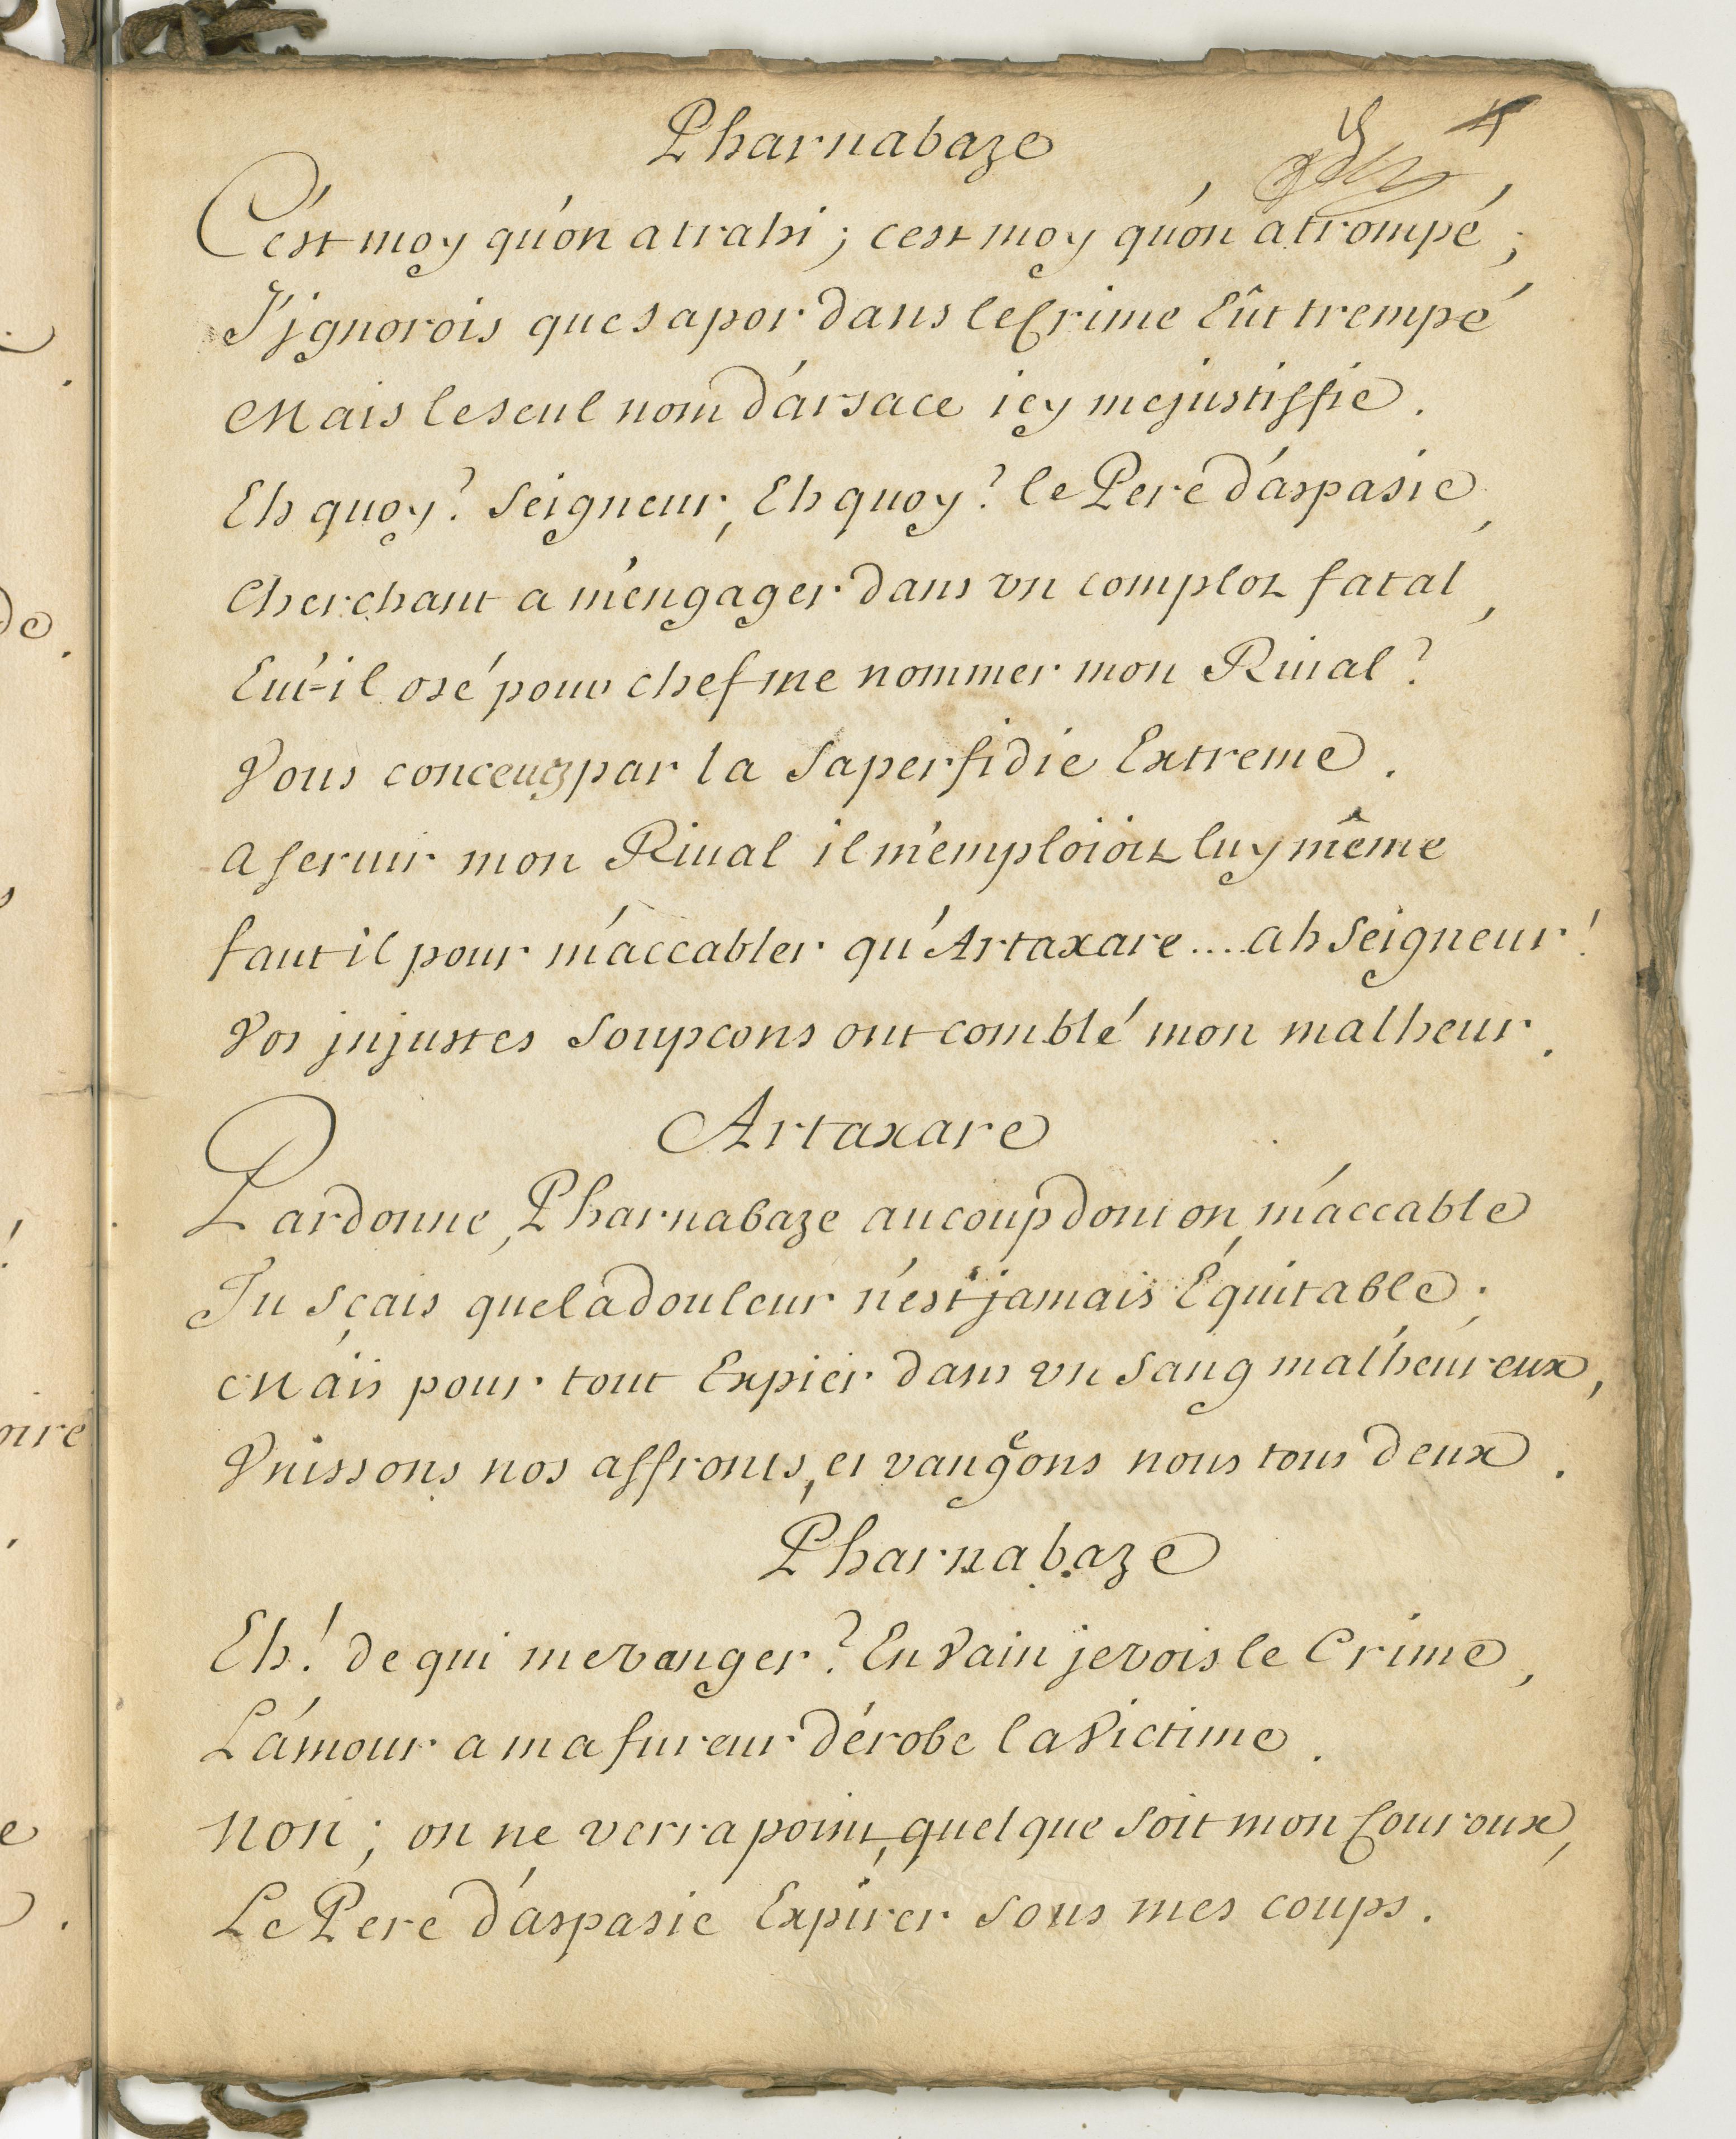 Pharnabaze
4
C'est moy qu'on a trahi ; c'est moy qu'on a trompé ;
J'jgnorois que sapor dans le Crime Eût trempé
Mais le seul nom d'arsace icy me justiffie .
Eh quoy ? Seigneur, Eh quoy ? le Pere d'aspasie,
Cherchant a m'engager dans vn complot fatal,
Eut-il osé pour chef me nommer mon Riual ?
Vous conceuez par la sa perfidie Extreme .
a seruir mon Riual il m'emploioit luy même
faut il pour m'accabler qu'Artaxare .... ah Seigneur !
Vos jnjustes soupcons ont comblé mon malheur .
Artaxare
Pardonne, Pharnabaze au coup dont on m'accable
Tu sçais que la douleur n'est jamais Équitable ;
Mais pour tout Expier dans vn sang malheureux,
Vnissons nos affronts, et vangeons nous tous deux .
Pharnabaze
Eh ! de qui me vanger ? En Vain je vois le Crime,
L'amour a ma fureur dérobe la Victime .
Non ; on ne verra point, quel que soit mon Couroux,
Le Pere d'aspasie Expirer sous mes coups .